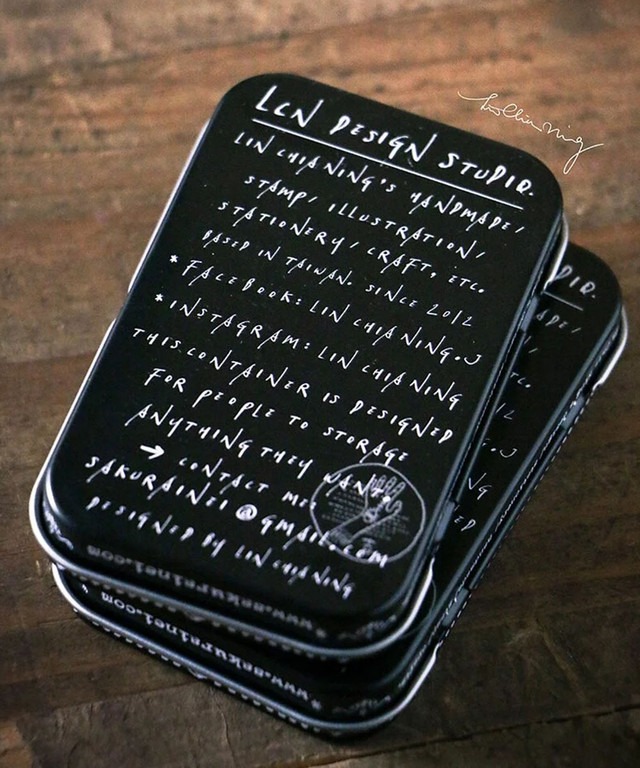 LCN DESIGN STUDIO.
LIN CHIANING'S HANDMADE/
STAMP/ ILLUSTRATION/
STATIONERY/ CRAFT, ETC.
BASED IN TAIWAN. SINCE 2012
*FACEBOOK: LIN CHIANING.J
*INSTAGRAM: LIN CHIANING
THIS CONTAINER IS DESIGNED
FOR PEOPLE TO STORAGE
ANYTHING THEY WANT.
→ CONTACT ME:
SAKURAINEI@GMAIL.COM
DESIGNED BY LIN CHIANING
*www.sakurainei.com
DIO.
ADE/
N/
TC.
12
G.J
NG
ED
*www.sakurainei.com